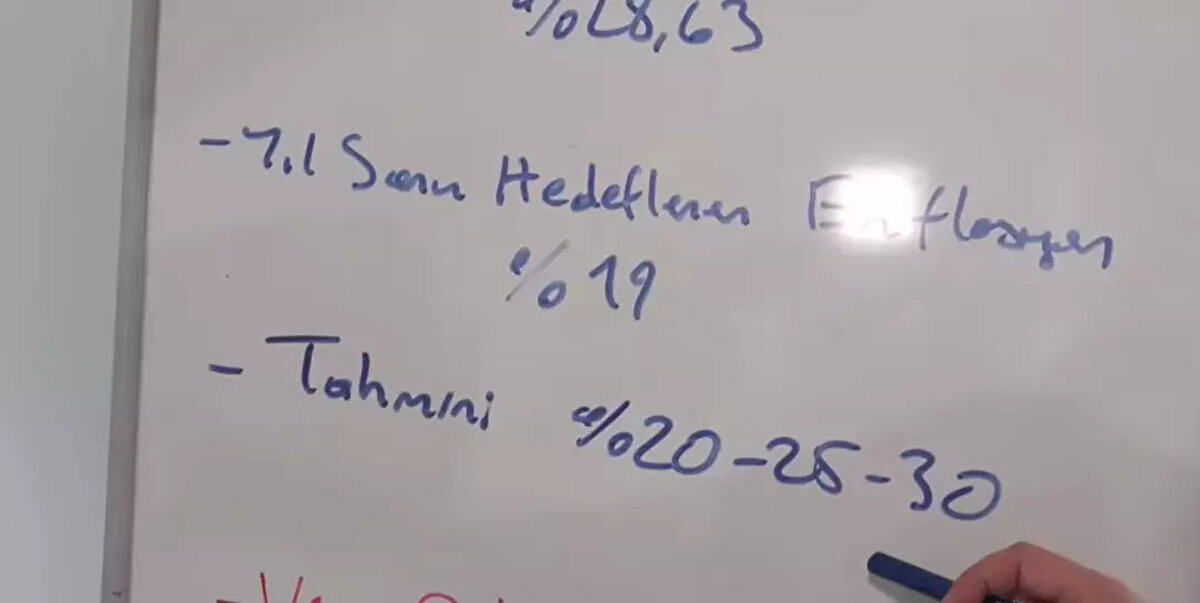 %28,63
- Yıl Sonu Hedeflenen Enflasyon
%19
- Tahmini %20-25-30